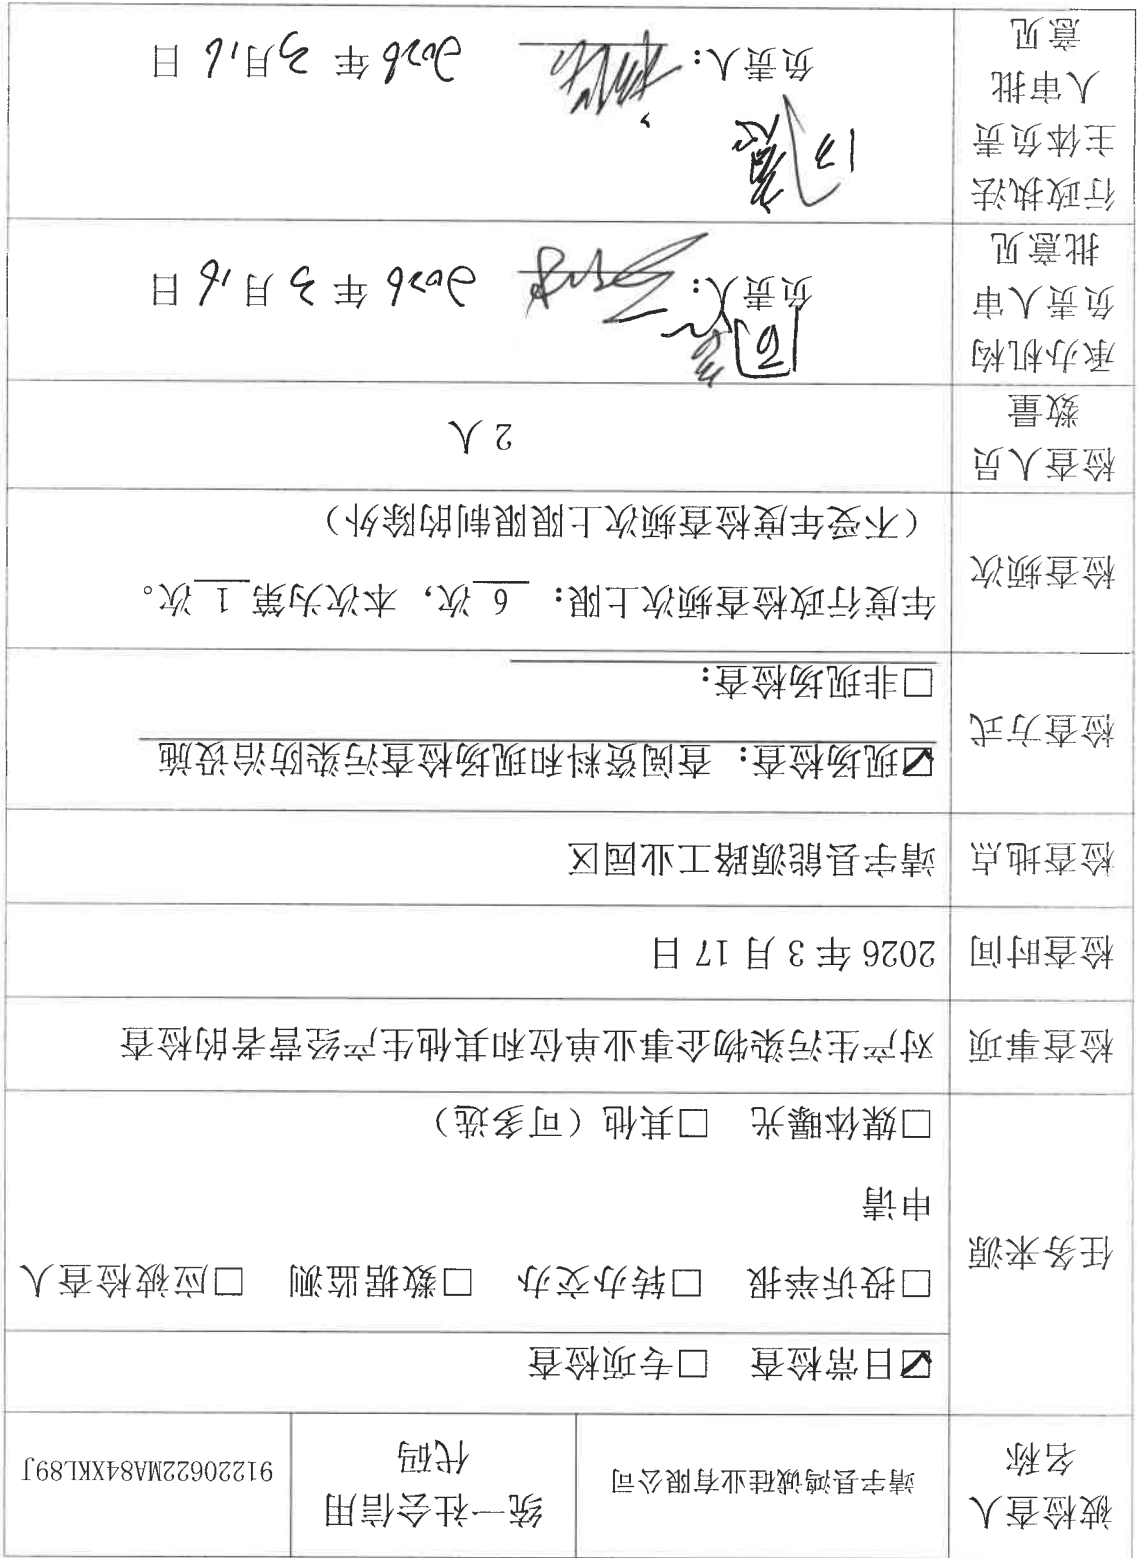 被检查人
名称
靖宇县鸿诚硅业有限公司
统一社会信用
代码
91220622MA84XKL89J
任务来源
☑日常检查 □专项检查
□投诉举报 □转办交办 □数据监测 □应被检查人
申请
□媒体曝光 □其他（可多选）
检查事项
对产生污染物企事业单位和其他生产经营者的检查
检查时间
2026 年 3 月 17 日
检查地点
靖宇县能源路工业园区
检查方式
☑现场检查：查阅资料和现场检查污染防治设施
□非现场检查：
检查频次
年度行政检查频次上限： 6 次，本次为第 1 次。
（不受年度检查频次上限限制的除外）
检查人员
数量
2 人
承办机构
负责人审
批意见
同意
负责人：
2026 年 3 月 16 日
行政执法
主体负责
人审批
意见
同意
负责人：
2026 年 3 月 16 日